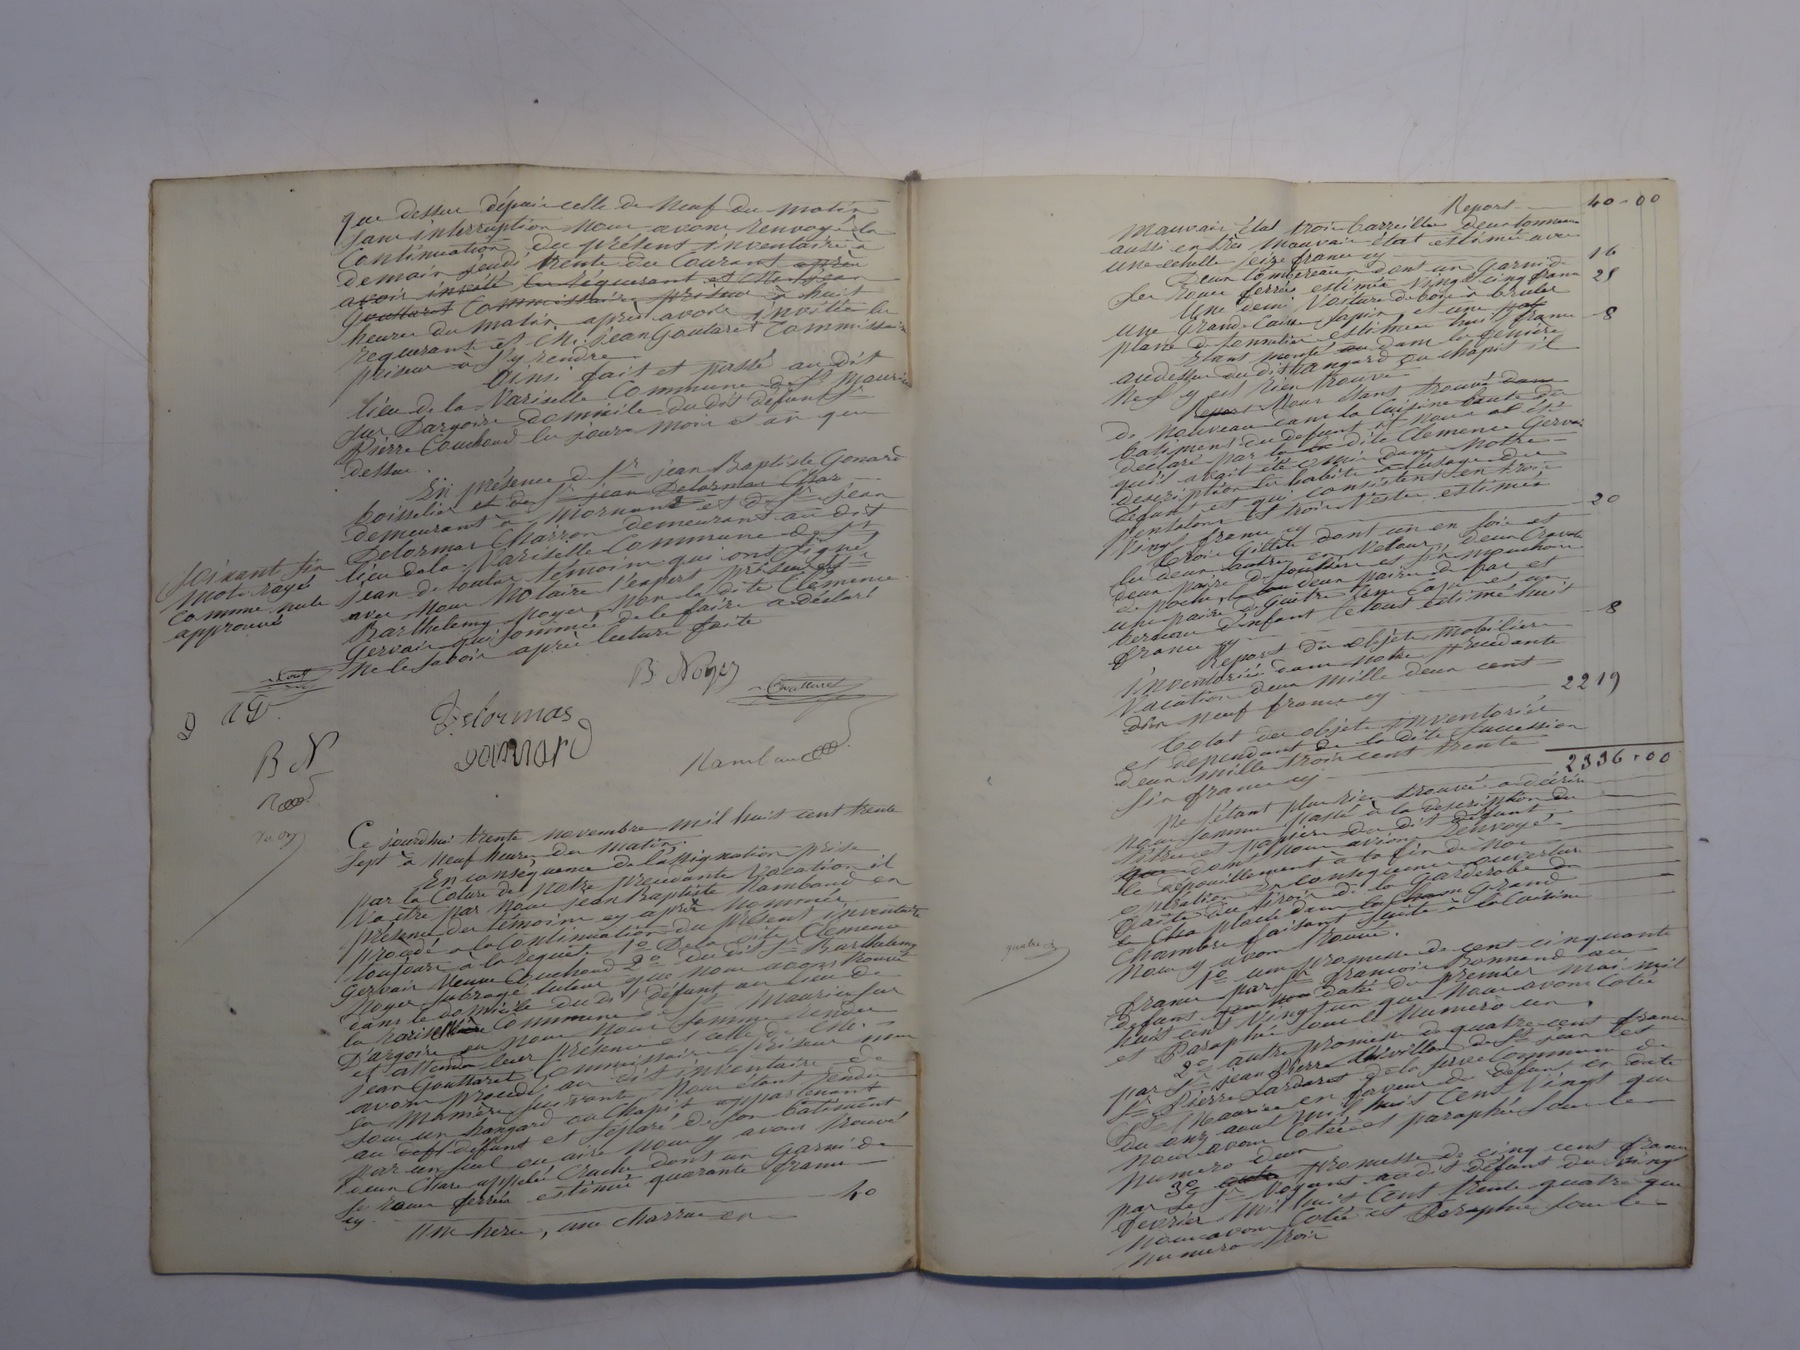 que dessus depuis celle de Neuf du Matin
sans interruption nous avons renvoyé la
Continuation du présent inventaire à
demain jeudi trente du Courant après
avoir invité les requerants et Mtre jean
Goutaret Commissaire priseur à huit
heures du matin après avoir invité les
requerants et M. jean Goutaret Commissaire
priseur à s'y rendre
Ainsi fait et passé au dit
lieu de la Variselle Commune de St Maurice
sur Dargoire domicile du dit défunt Sr
Pierre Couchoud les jours mois et an que
dessus.
En présence de Sr jean Baptiste Gonard
boisselier et de Sr jean Delormas Char
demeurant à Mornant et de Sr jean
Delormas Charron demeurant au dit
lieu de la Variselle Commune de St
jean de toulas témoins qui ont signé
avec Nous Notaire l'expert présents et
Barthelemy Noyer Non la dite Clemence
Gervais qui sommée de le faire a déclaré
Ne le savoir après lecture faite
mots rayé
Comme nuls
approuvé
B Noyer
Delormas
gonnard
B N
Ce jourdhui trente novembre mil huit cent trente
sept à neuf heures du matin.
En conséquence de l'assignation prise
par la Cloture de Notre precedente Vacation il
Va être par nous jean Baptiste Rambaud en
présence des témoins cy après Nommés
procédé à la Continuation du présent inventaire
toujours à la requete 1o De la dite Clemence
Gervais Veuve Couchoud 2o du dit Sr Barthelemy
Noyer Subrogé tuteur que nous avons trouvé
dans le domicile du dit défunt au lieu de
la Variselle Commune de St Maurice sur
Dargoire ou nous nous sommes rendus
et attendu leur présence et celle de Mtre
jean Gouttaret Commissaire priseur nous
avons procédé au dit inventaire de
la Manière suivante. Nous étant rendus
sous un hangard ou Chapit appartenant
au defunt et séparé de son batiment
par un suel ou aire nous y avons trouvé
deux Chars appelés Crache dont un garni de
ses roues ferrées estimés quarante francs
cy 40
Une herse, une charrue en
Report 40-00
Mauvais état trois barreilles deux tonneaux
aussi en très mauvais état estimés avec
une echelle seize francs cy 16
Deux tombereaux dont un garni de
ses roues ferrées estimés vingt cinq francs 25
Une demi Voiture de bois à bruler
Une Grande Caisse sapin et une
plane de tonnelier estimées huit francs 8
Etant monté dans la fenière
au dessus du dit hangard ou chapit il
Ne s'y est rien trouvé
Nous étant trouvé dans
de nouveau dans la Cuisine haute du
batiment du defunt il nous at été
déclaré par la dite Clemence Gervais
qu'il avait été omis dans Notre
description les habits à l'usage du
défunt et qui consistent en trois
pantalons et trois Vestes estimés
Vingt francs cy 20
Trois Gillets dont un en soie et
les deux autres en Velour, deux Cravates
deux paires de souliers et six mouchoirs
de poche, deux paires de bas et
une paire de Guêtre Une Cape et un
berceau d'enfant le tout estimé huit
francs cy 8
Report des objets Mobiliers
inventoriés dans notre précedante
Vacation deux Mille deux cent
dix neuf francs cy 2219
Total des objets inventoriés
et dependant de la dite succession
deux mille trois cent trente
six francs cy 2336-00
Ne s'étant plus rien trouvé a décrire
Nous sommes passé à la description des
titres et papiers du dit défunt
dont nous avions renvoyé
le dépouillement à la fin de nos
opérations En consequence ouverture
faite du tiroir de la Garderobe
placé dans Grand
Chambre faisant suite à la Cuisine
Nous y avons trouvé.
1o une promesse de cent cinquante
francs par Sr françois Bonnand au
defunt datée du premier mai mil
huit cent vingt un que Nous avons Cotée
et Paraphée sous le Numero un.
2o autre promesse de quatre cent francs
par Sr jean Pierre Thévillon de St jean et
Sr Pierre Lardaret de la Serve Commune de
St Maurice en faveur du defunt en date
du onze aout mil huit Cent Vingt que
Nous avons Cotée et paraphée sous le
Numero deux
3o promesse de cinq cent francs
par le Sr Voyant au dit défunt du vingt
fevrier Mil huit Cent trente quatre que
Nous avons Cotée et Paraphée sous le
Numero trois